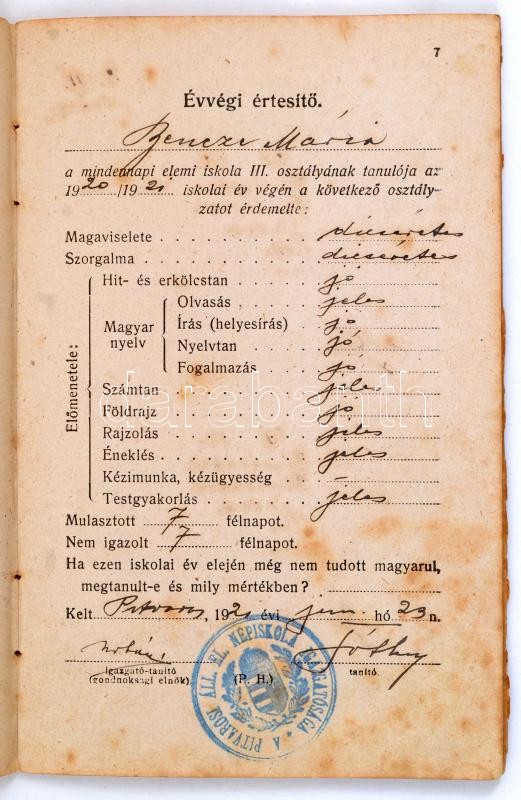 7
Évvégi értesítő.
Bencze Mária
a mindennapi elemi iskola III. osztályának tanulója az
1920/1921 iskolai év végén a következő osztály-
zatot érdemelte:
Magaviselete . . . . . . . . . dicséretes
Szorgalma . . . . . . . . . . dicséretes
Előmenetele:
Hit- és erkölcstan . . . . . jó
Magyar nyelv
Olvasás . . . . . jeles
Írás (helyesírás) . jó
Nyelvtan . . . . jó
Fogalmazás . . . jó
Számtan . . . . . . . . . jeles
Földrajz . . . . . . . . . jó
Rajzolás . . . . . . . . . jeles
Éneklés . . . . . . . . . jeles
Kézimunka, kézügyesség . . . –
Testgyakorlás . . . . . . . jeles
Mulasztott 7 félnapot.
Nem igazolt 7 félnapot.
Ha ezen iskolai év elején még nem tudott magyarul,
megtanult-e és mily mértékben?
Kelt Pitvaros, 1921 évi jun. hó 23 n.
igazgató-tanító
(gondnoksági elnök)
(P. H.)
tanító
A PITVAROSI ÁLL. EL. NÉPISKOLA IGAZGATÓSÁGA
darabanth